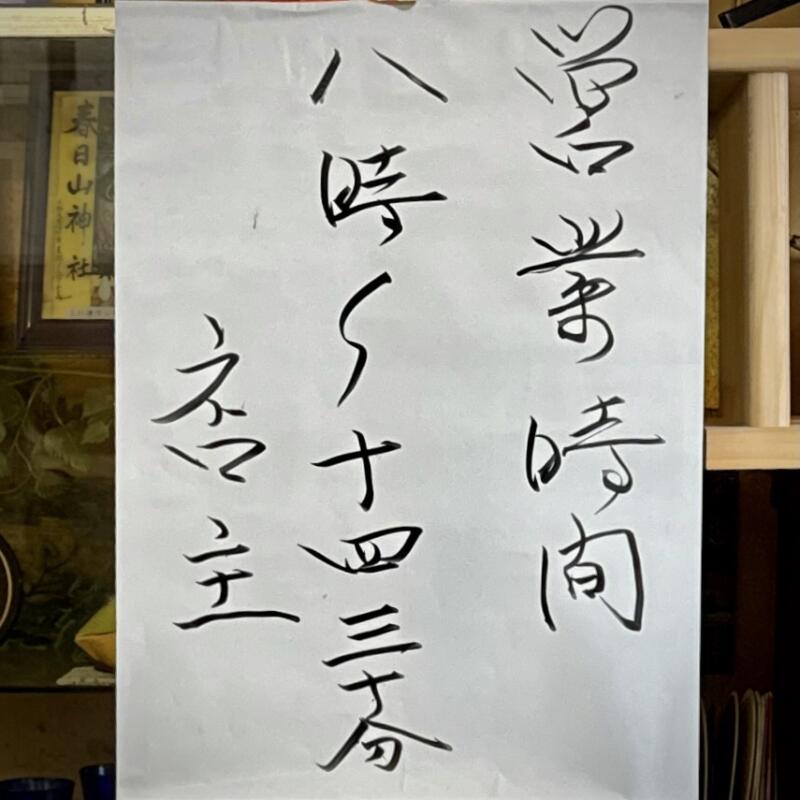 営業時間
八時〜十四三十分
店主
春日山神社